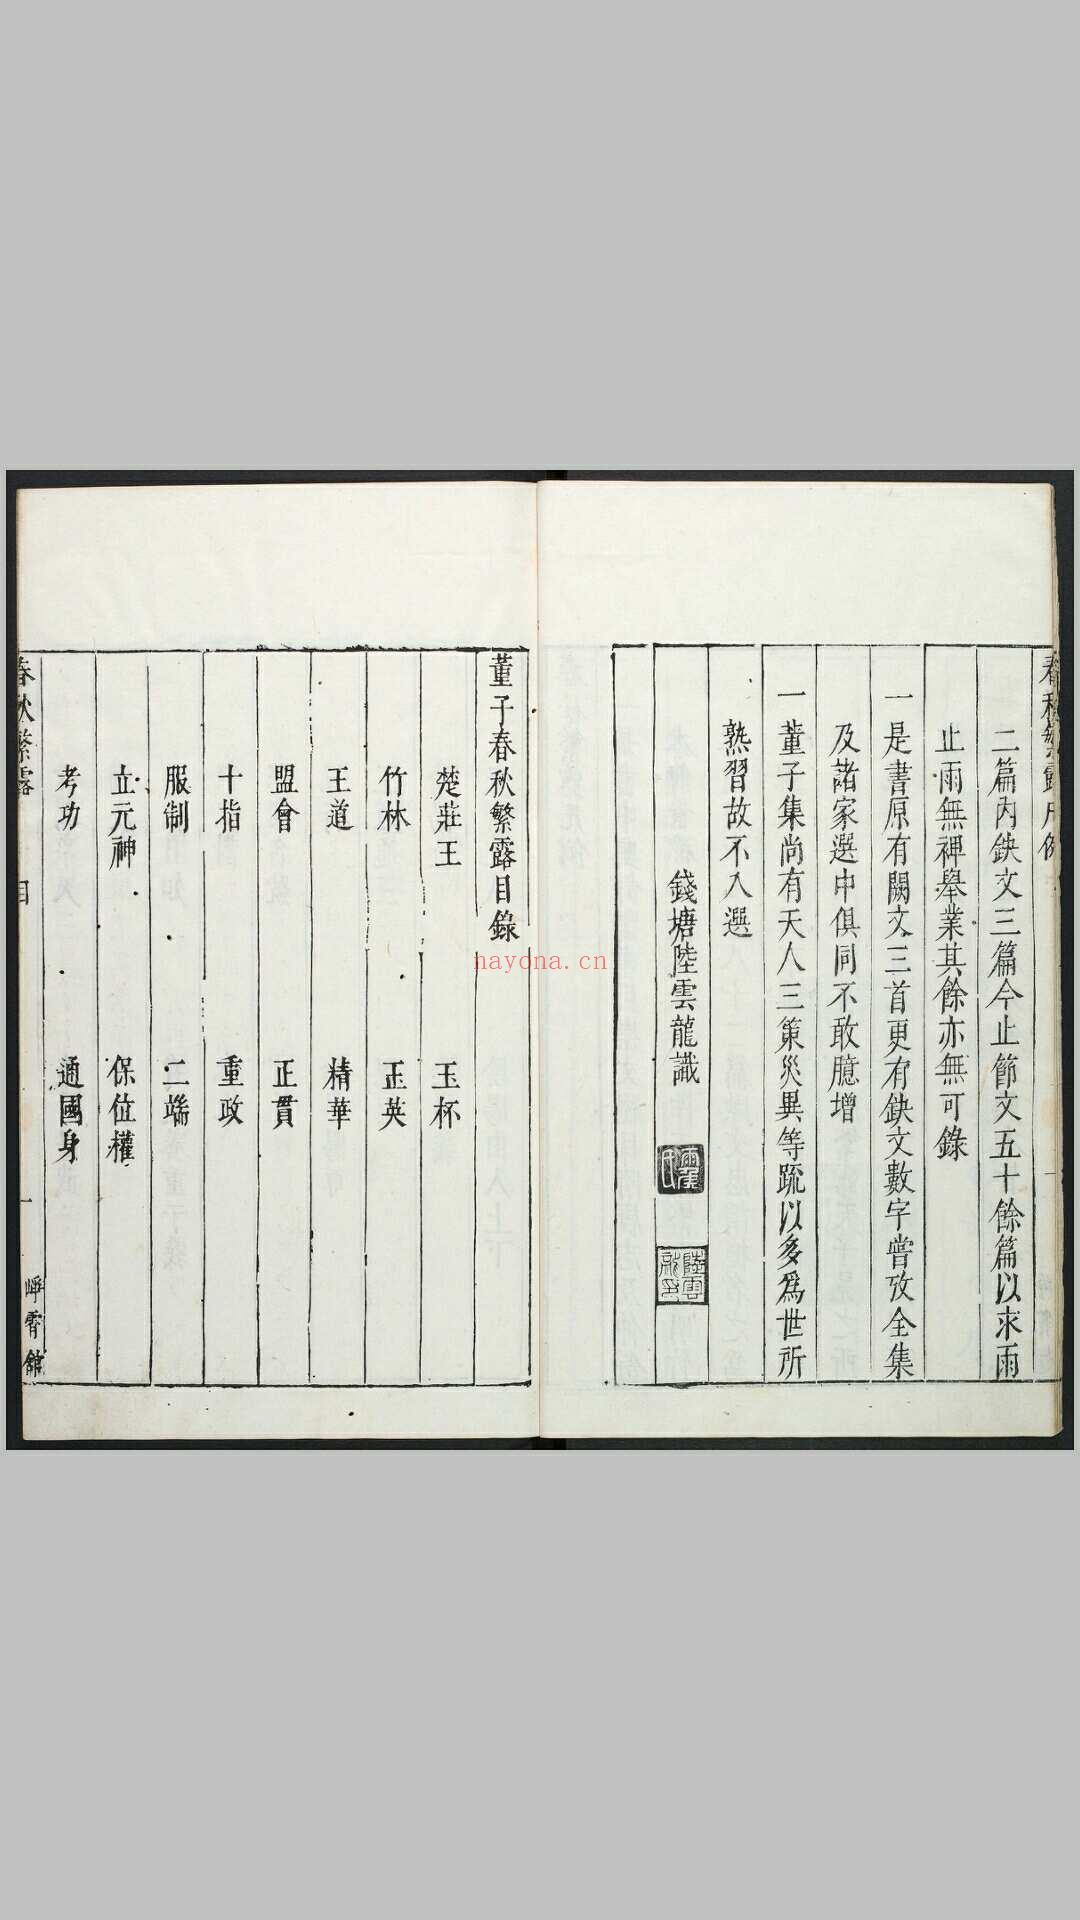 春秋繁露凡例
二篇內缺文三篇今止節文五十餘篇以求雨
止雨無裨舉業其餘亦無可錄
一是書原有闕文三首更有缺文數字嘗攷全集
及諸家選中俱同不敢臆增
一董子集尚有天人三策災異等疏以多為世所
熟習故不入選
錢塘陸雲龍識
雨侯氏
陸雲龍印
董子春秋繁露目錄
楚莊王 玉杯
竹林 玉英
王道 精華
盟會 正貫
十指 重政
服制 二端
立元神 保位權
考功 通國身
春秋繁露 目 一 崢霄館
hayona.cn